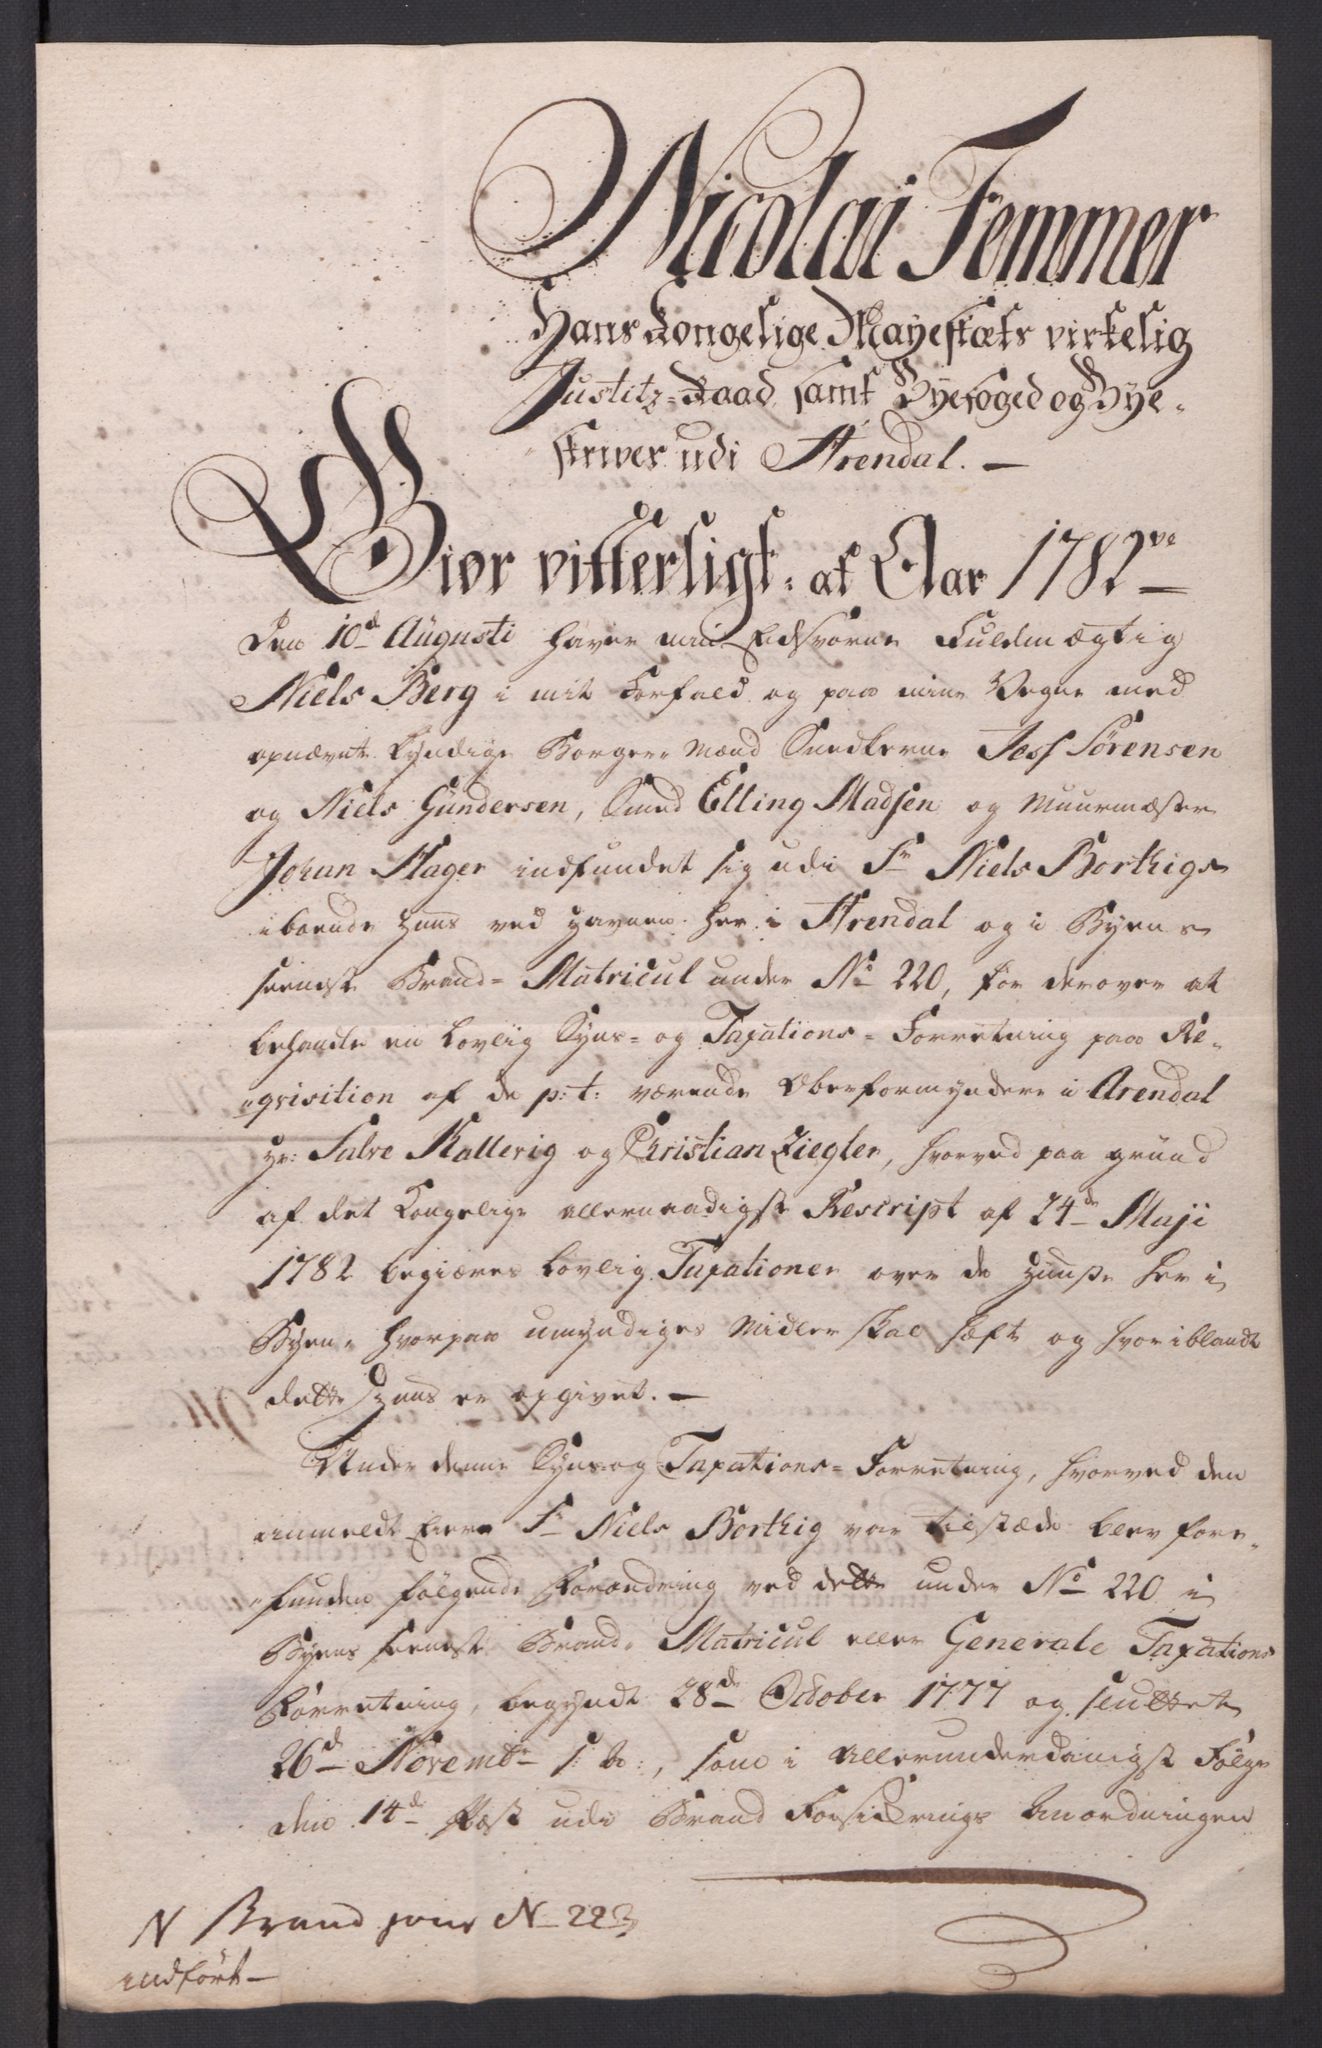 Nicolai Femmer
Hans Kongelige Mayestæts virkelig
Justitz-Raad samt Byefoged og Bye-
skriver udi Arendal. —
Giør vitterligt: at Aar 1782ve
Den 10d Augusti haver min Eedsvorne Fuldmægtig
Niels Berg i mit Forfald og paa mine Vegne med
opnævnte kyndige Borger-Mænd Snedkerne Jess Sørensen
og Niels Gundersen, Smed Elling Madsen og Muurmæster
Johan Slager indfundet sig udi Sr Niels Borthigs
iboende Huus ved Havnen her i Arendal og i Byens
seenste Brand-Matricul under No 220, for derover at
behandle en lovlig Syns- og Taxations-Forretning paa Re-
qvisition af de p: t: værende Oberformyndere i Arendal
Hr: Salve Kallevig og Christian Ziegler, hvorved paa grund
af det Kongelige allernaadigste Rescript af 24de Maji
1782 begiæres lovlig Taxationer over de Huuse her i
Byen, hvorpaa umyndiges Midler skal hæfte og hvoriblandt
dette Huus er opgivet. —
Under denne Syns og Taxations-Forretning, hvorved den
anmeldte Eiere Sr Niels Borthig var tilstæde blev fore-
funden følgende Forandring ved dette under No 220 i
Byens seenste Brand-Matricul eller Generale Taxations
Forretning, begyndt 28de October 1777 og sluttet
26d Novembr s: A:, som i allerunderdanigst Følge
den 14d Post udi Brand Forsikrings Anordningen
N Brand N 223
indført —